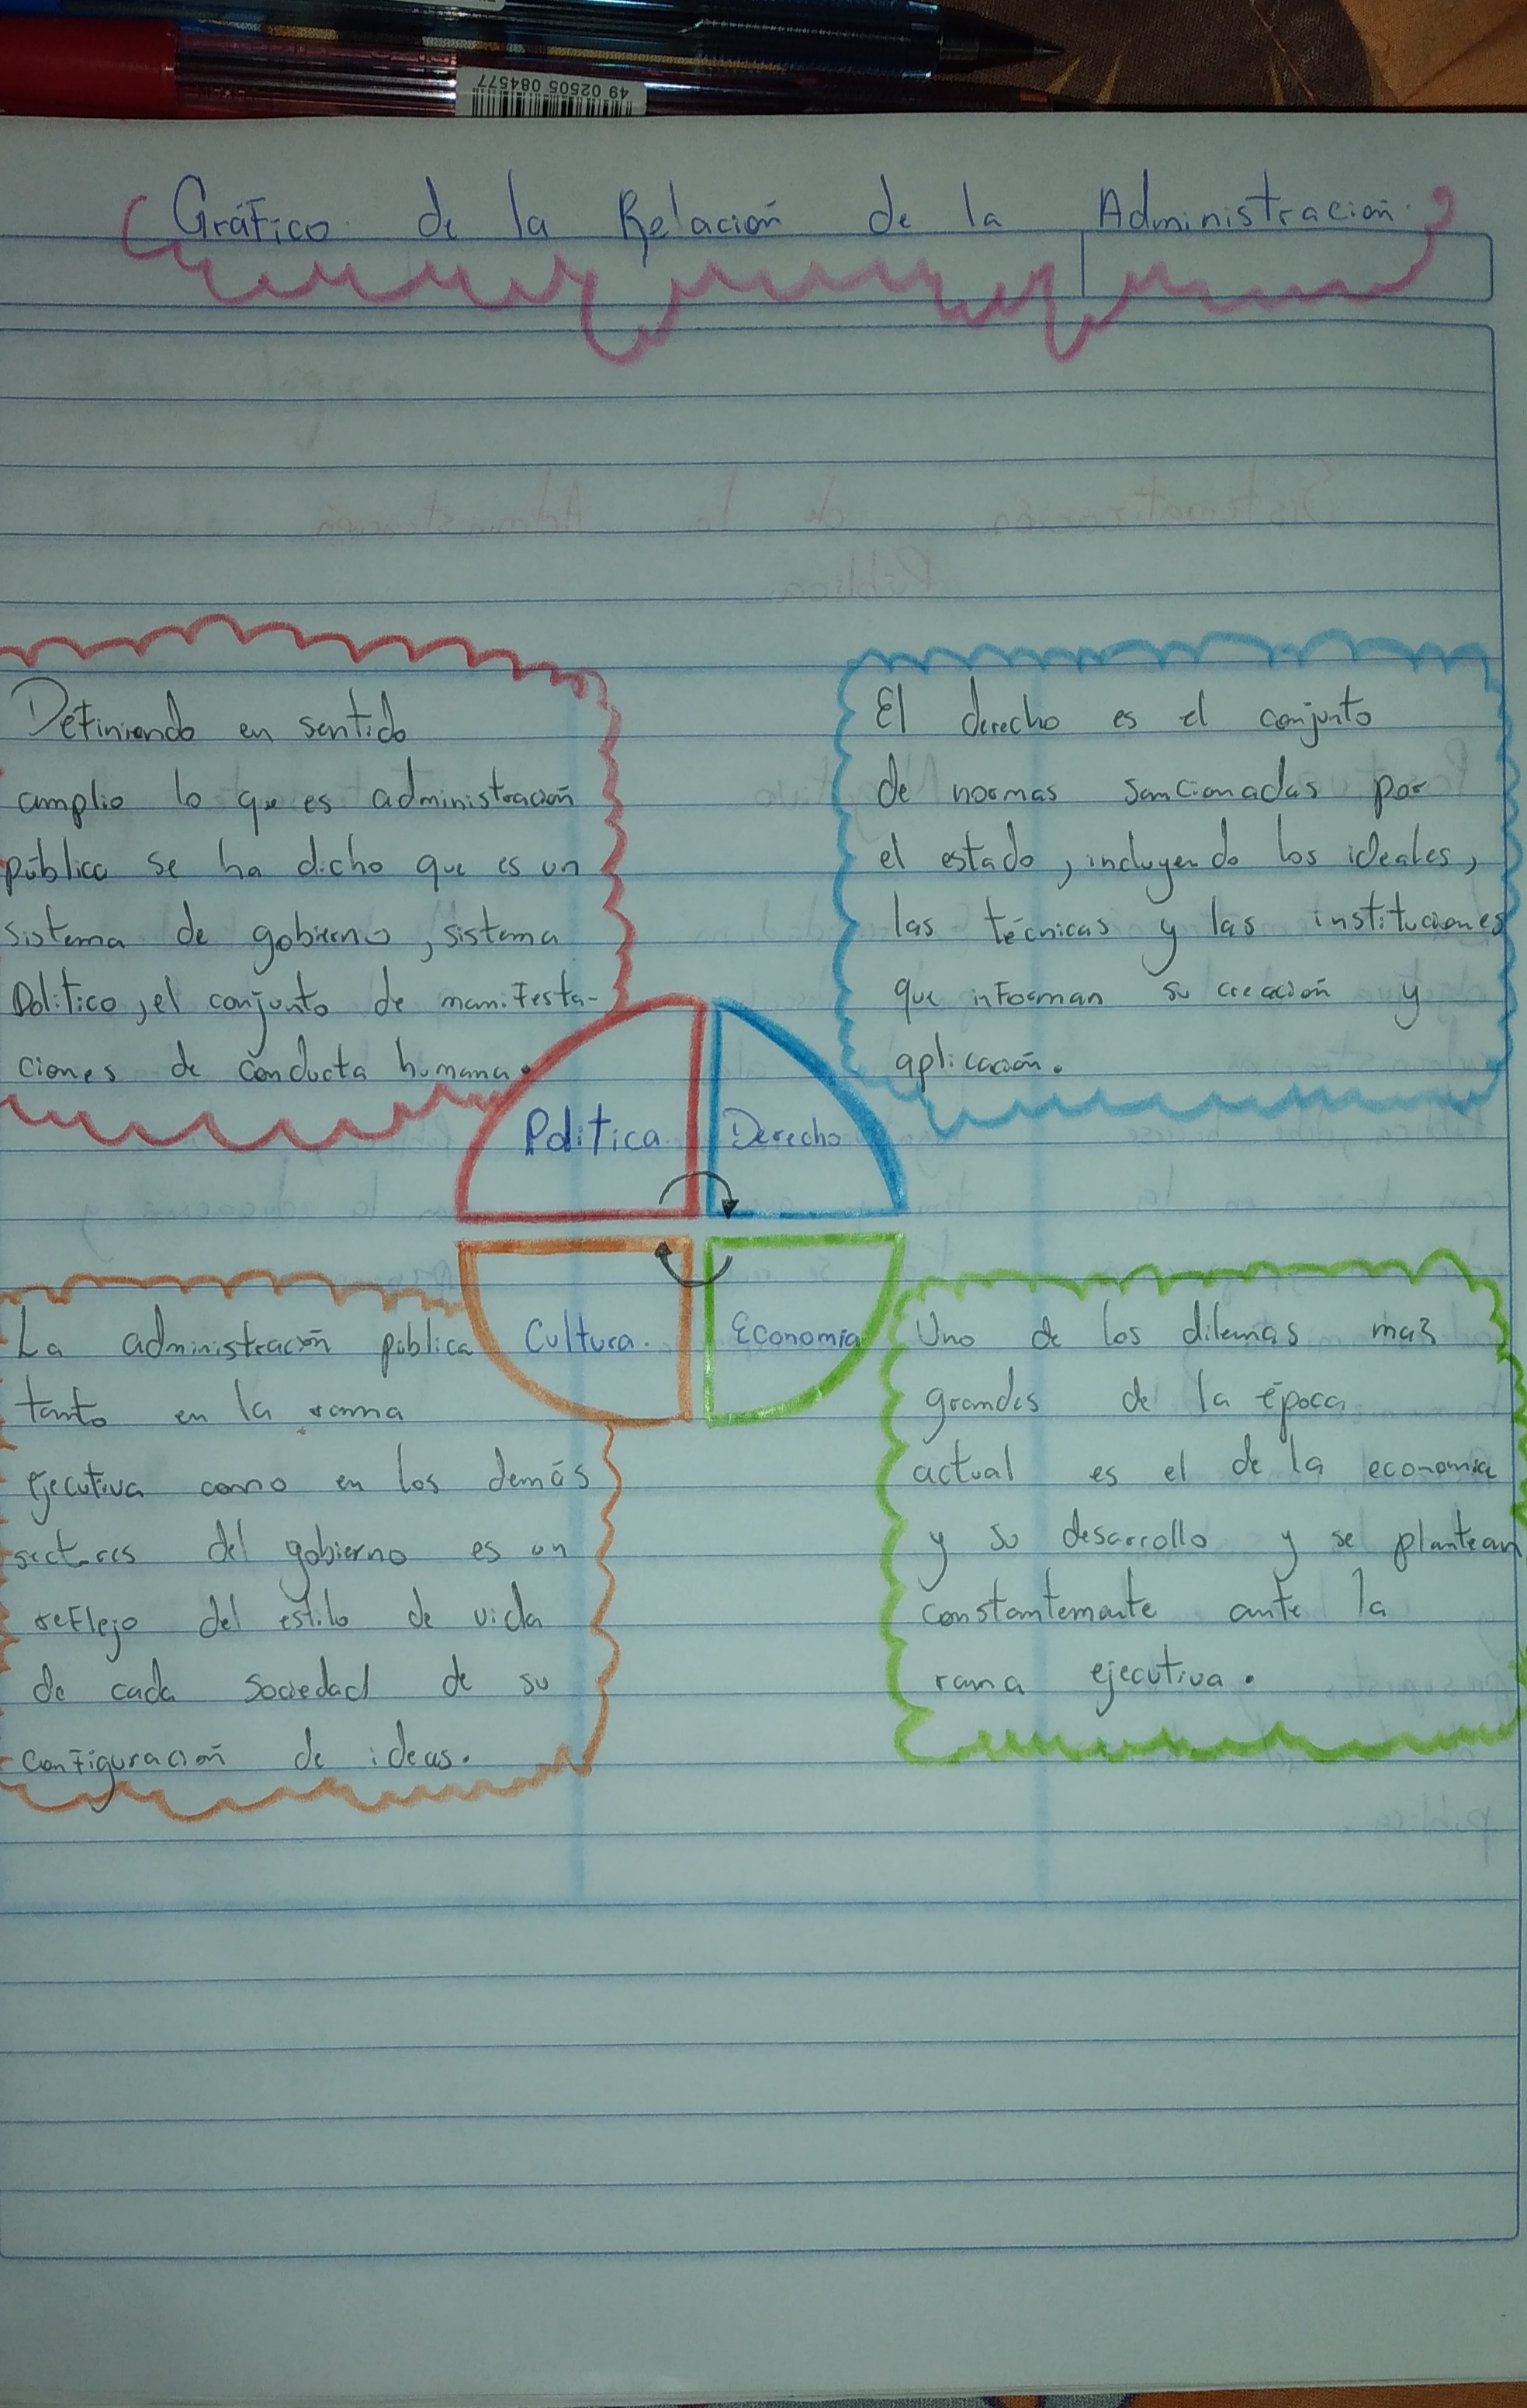 49 02505 084577
Gráfico de la Relación de la Administración
Definiendo en sentido
amplio lo que es administración
pública se ha dicho que es un
sistema de gobierno, sistema
Político, el conjunto de manifesta-
ciones de conducta humana.
El derecho es el conjunto
de normas sancionadas por
el estado, incluyendo los ideales,
las técnicas y las instituciones
que informan su creación y
aplicación.
Política
Derecho
Cultura.
Economía
La administración pública
tanto en la rama
ejecutiva como en los demás
sectores del gobierno es un
reflejo del estilo de vida
de cada sociedad de su
configuración de ideas.
Uno de los dilemas mas
grandes de la época
actual es el de la economia
y su desarrollo y se plantean
constantemente ante la
rama ejecutiva.